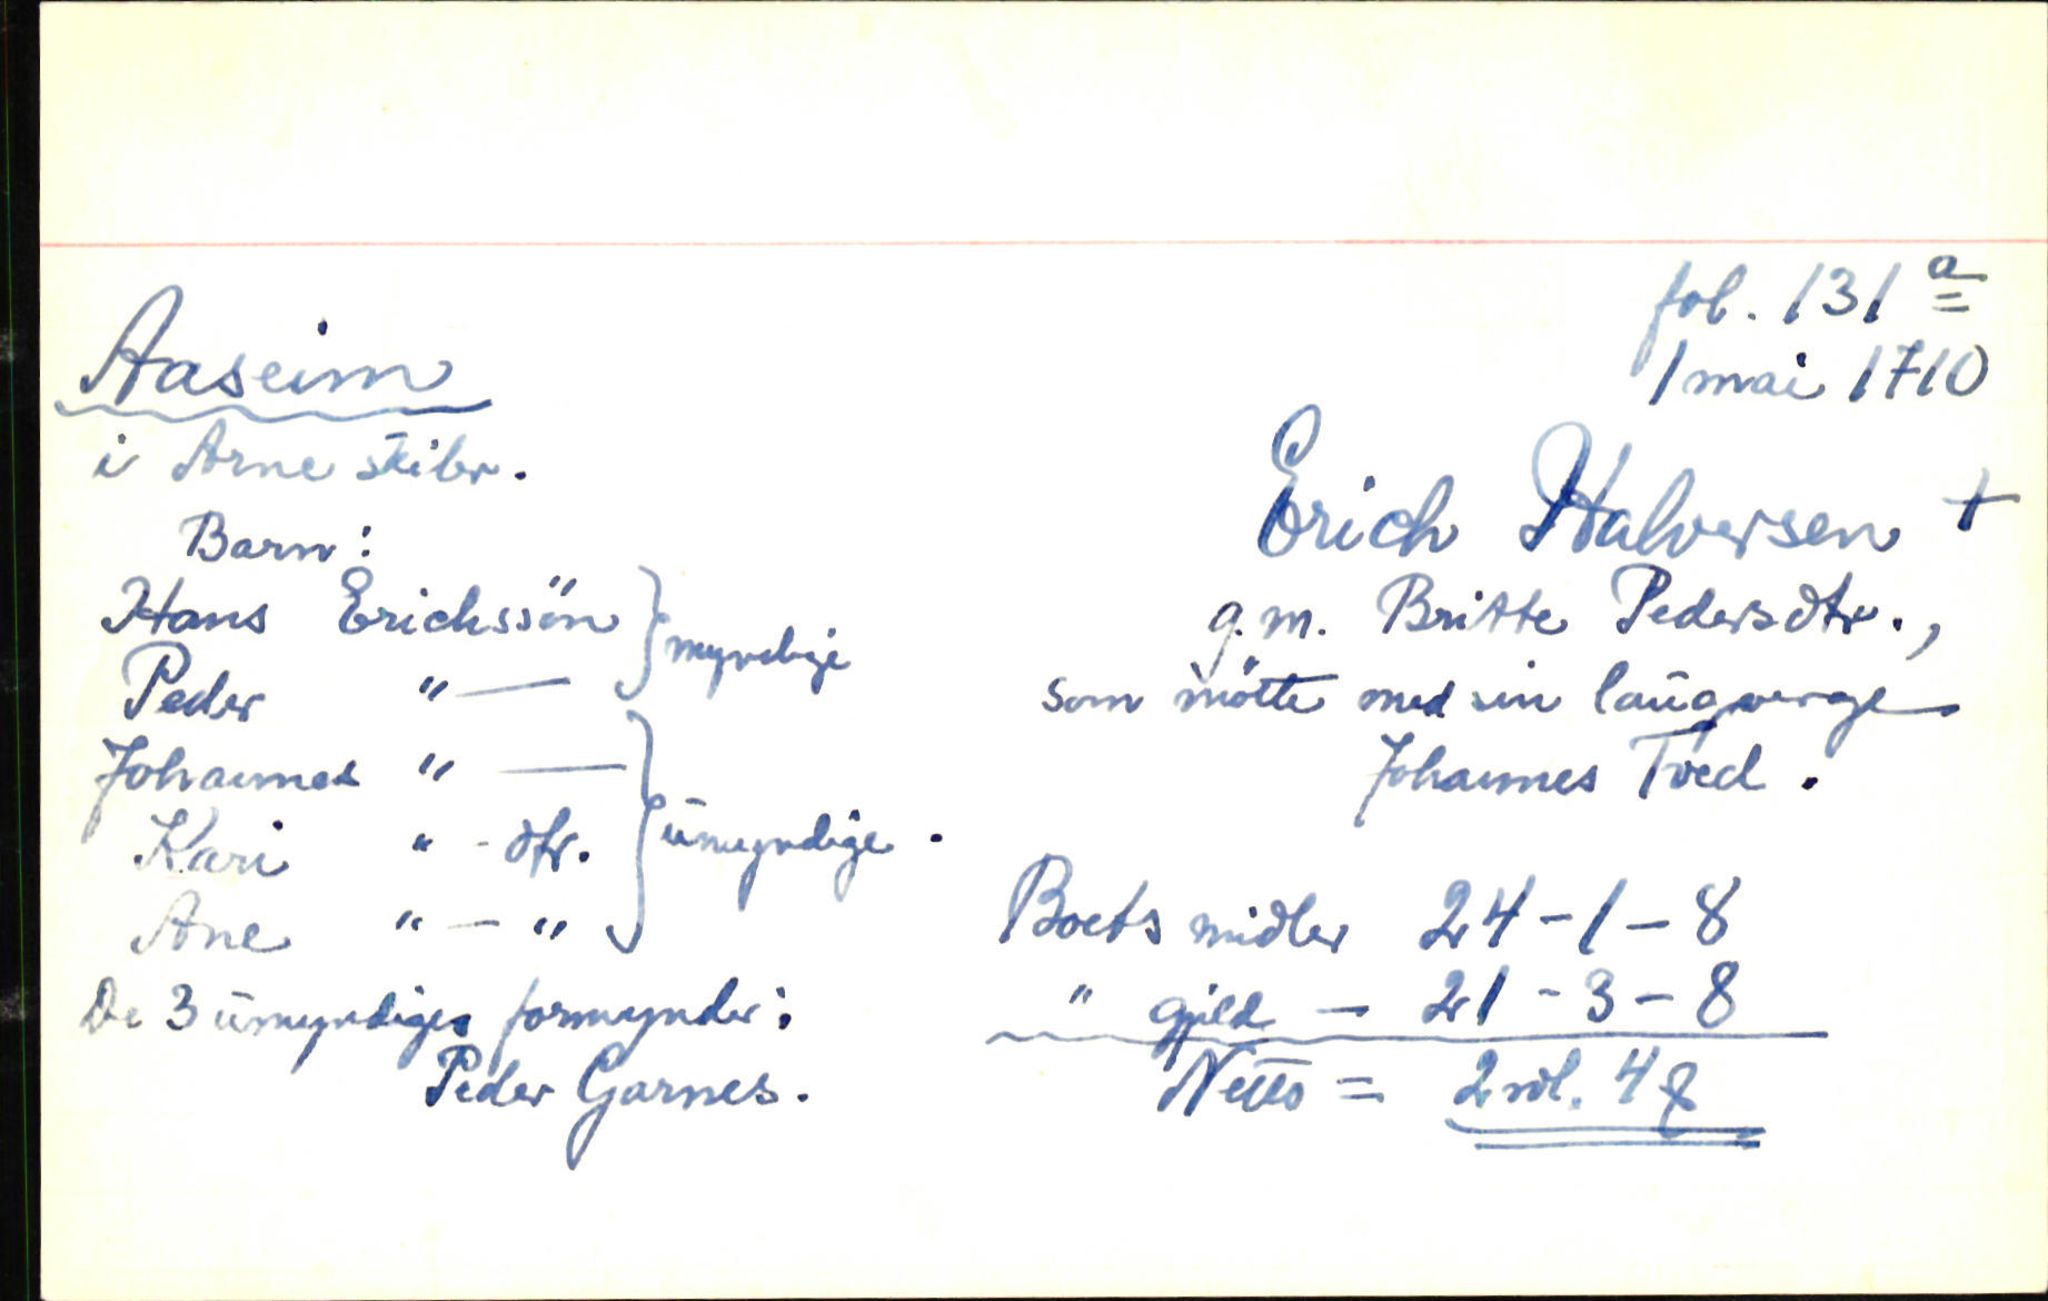 fol. 131 a
1 mai 1710
Aaseim
i Arne skibr.
Erich Halversen +
g.m. Britte Pedersdtr.,
som mötte med sin laugverge
Johannes Tved.
Barn:
Hans Erichssön } myndige
Peder " —
Johannes " — } umyndige.
Kari " - dtr.
Ane " — "
De 3 umyndiges formynder:
Peder Garnes.
Boets midler 24 - 1 - 8
" gjeld — 21 - 3 - 8
Netto = 2 rdl. 4 ꝭ